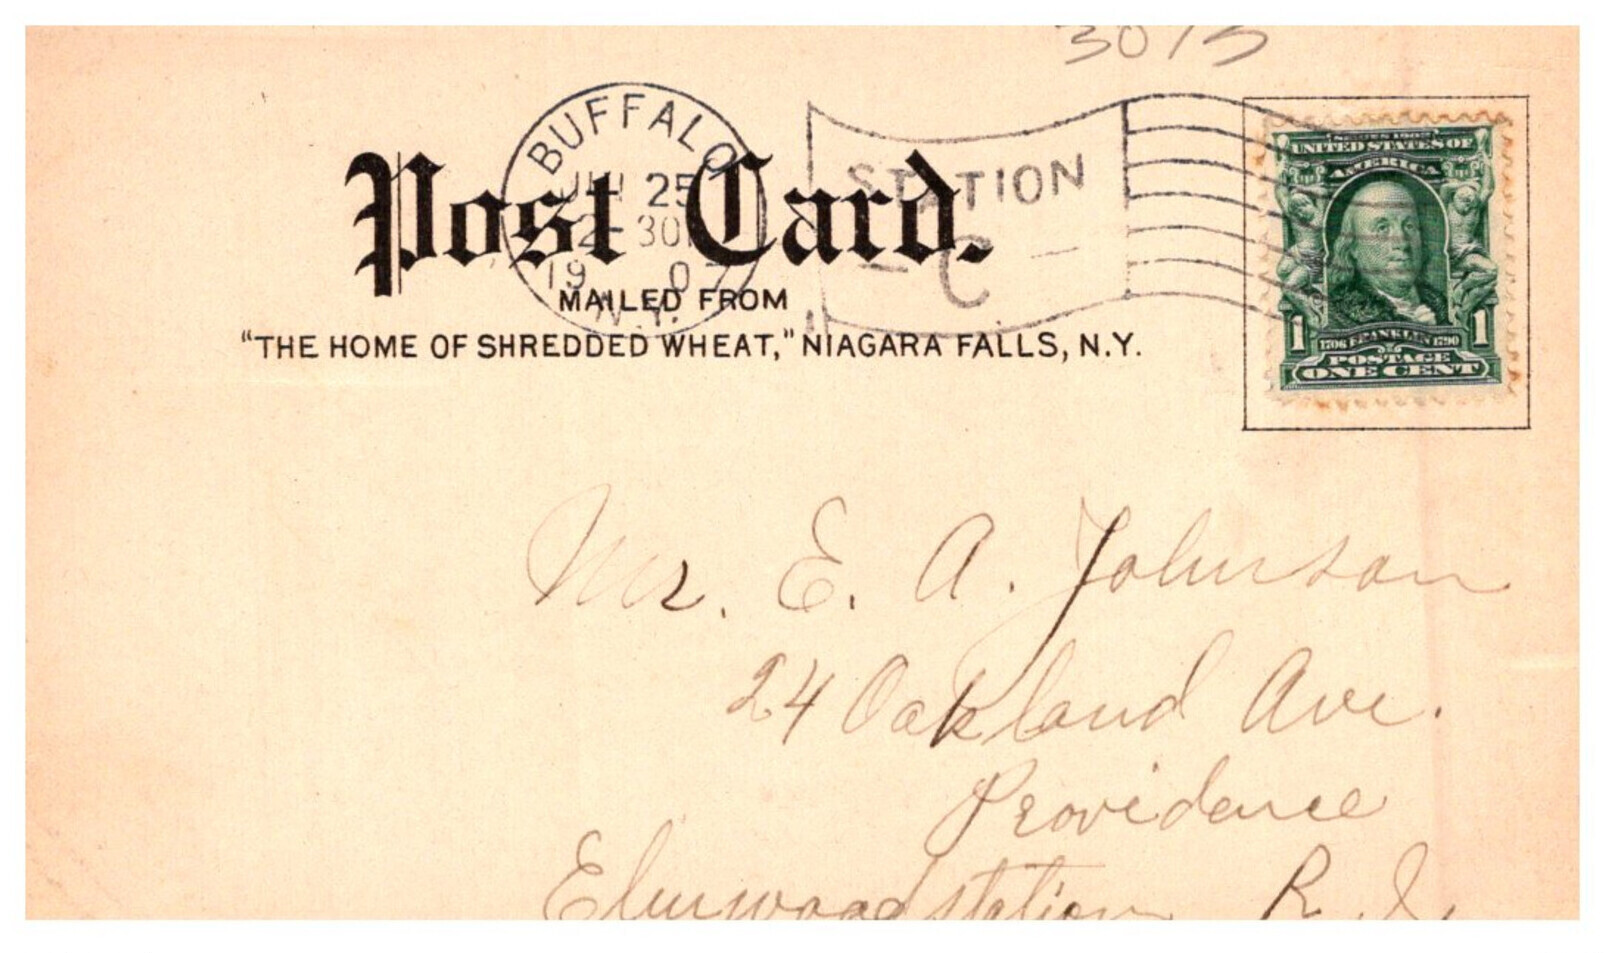 3015
BUFFALO
25
2-30
19 07
N.Y.
STATION
C
Post Card.
MAILED FROM
"THE HOME OF SHREDDED WHEAT," NIAGARA FALLS, N.Y.
SERIES 1902
UNITED STATES OF
AMERICA
1 1
1706 FRANKLIN 1790
POSTAGE
ONE CENT
Mr. E. A. Johnson
24 Oakland Ave.
Providence
Elmwood station R. I.